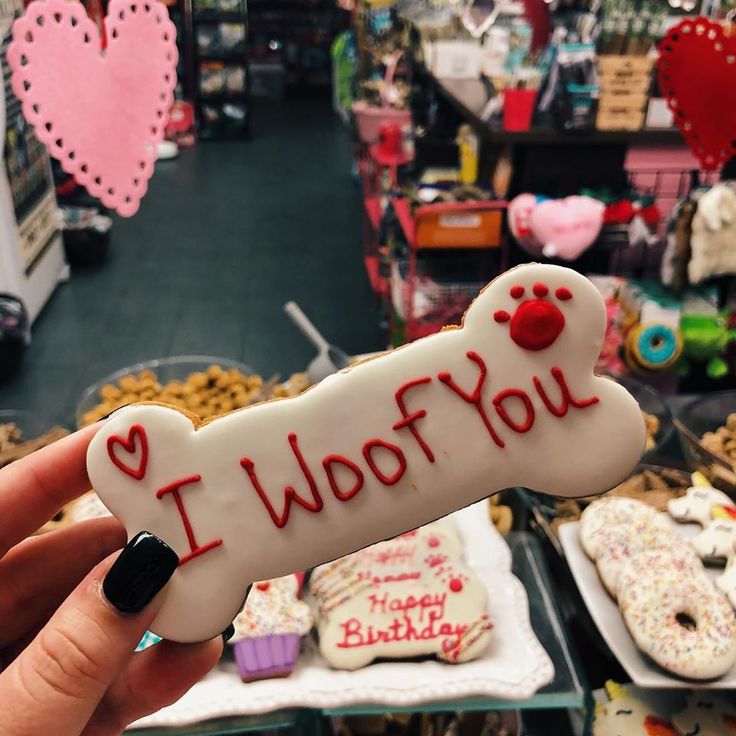 I Woof You
Happy
Birthday